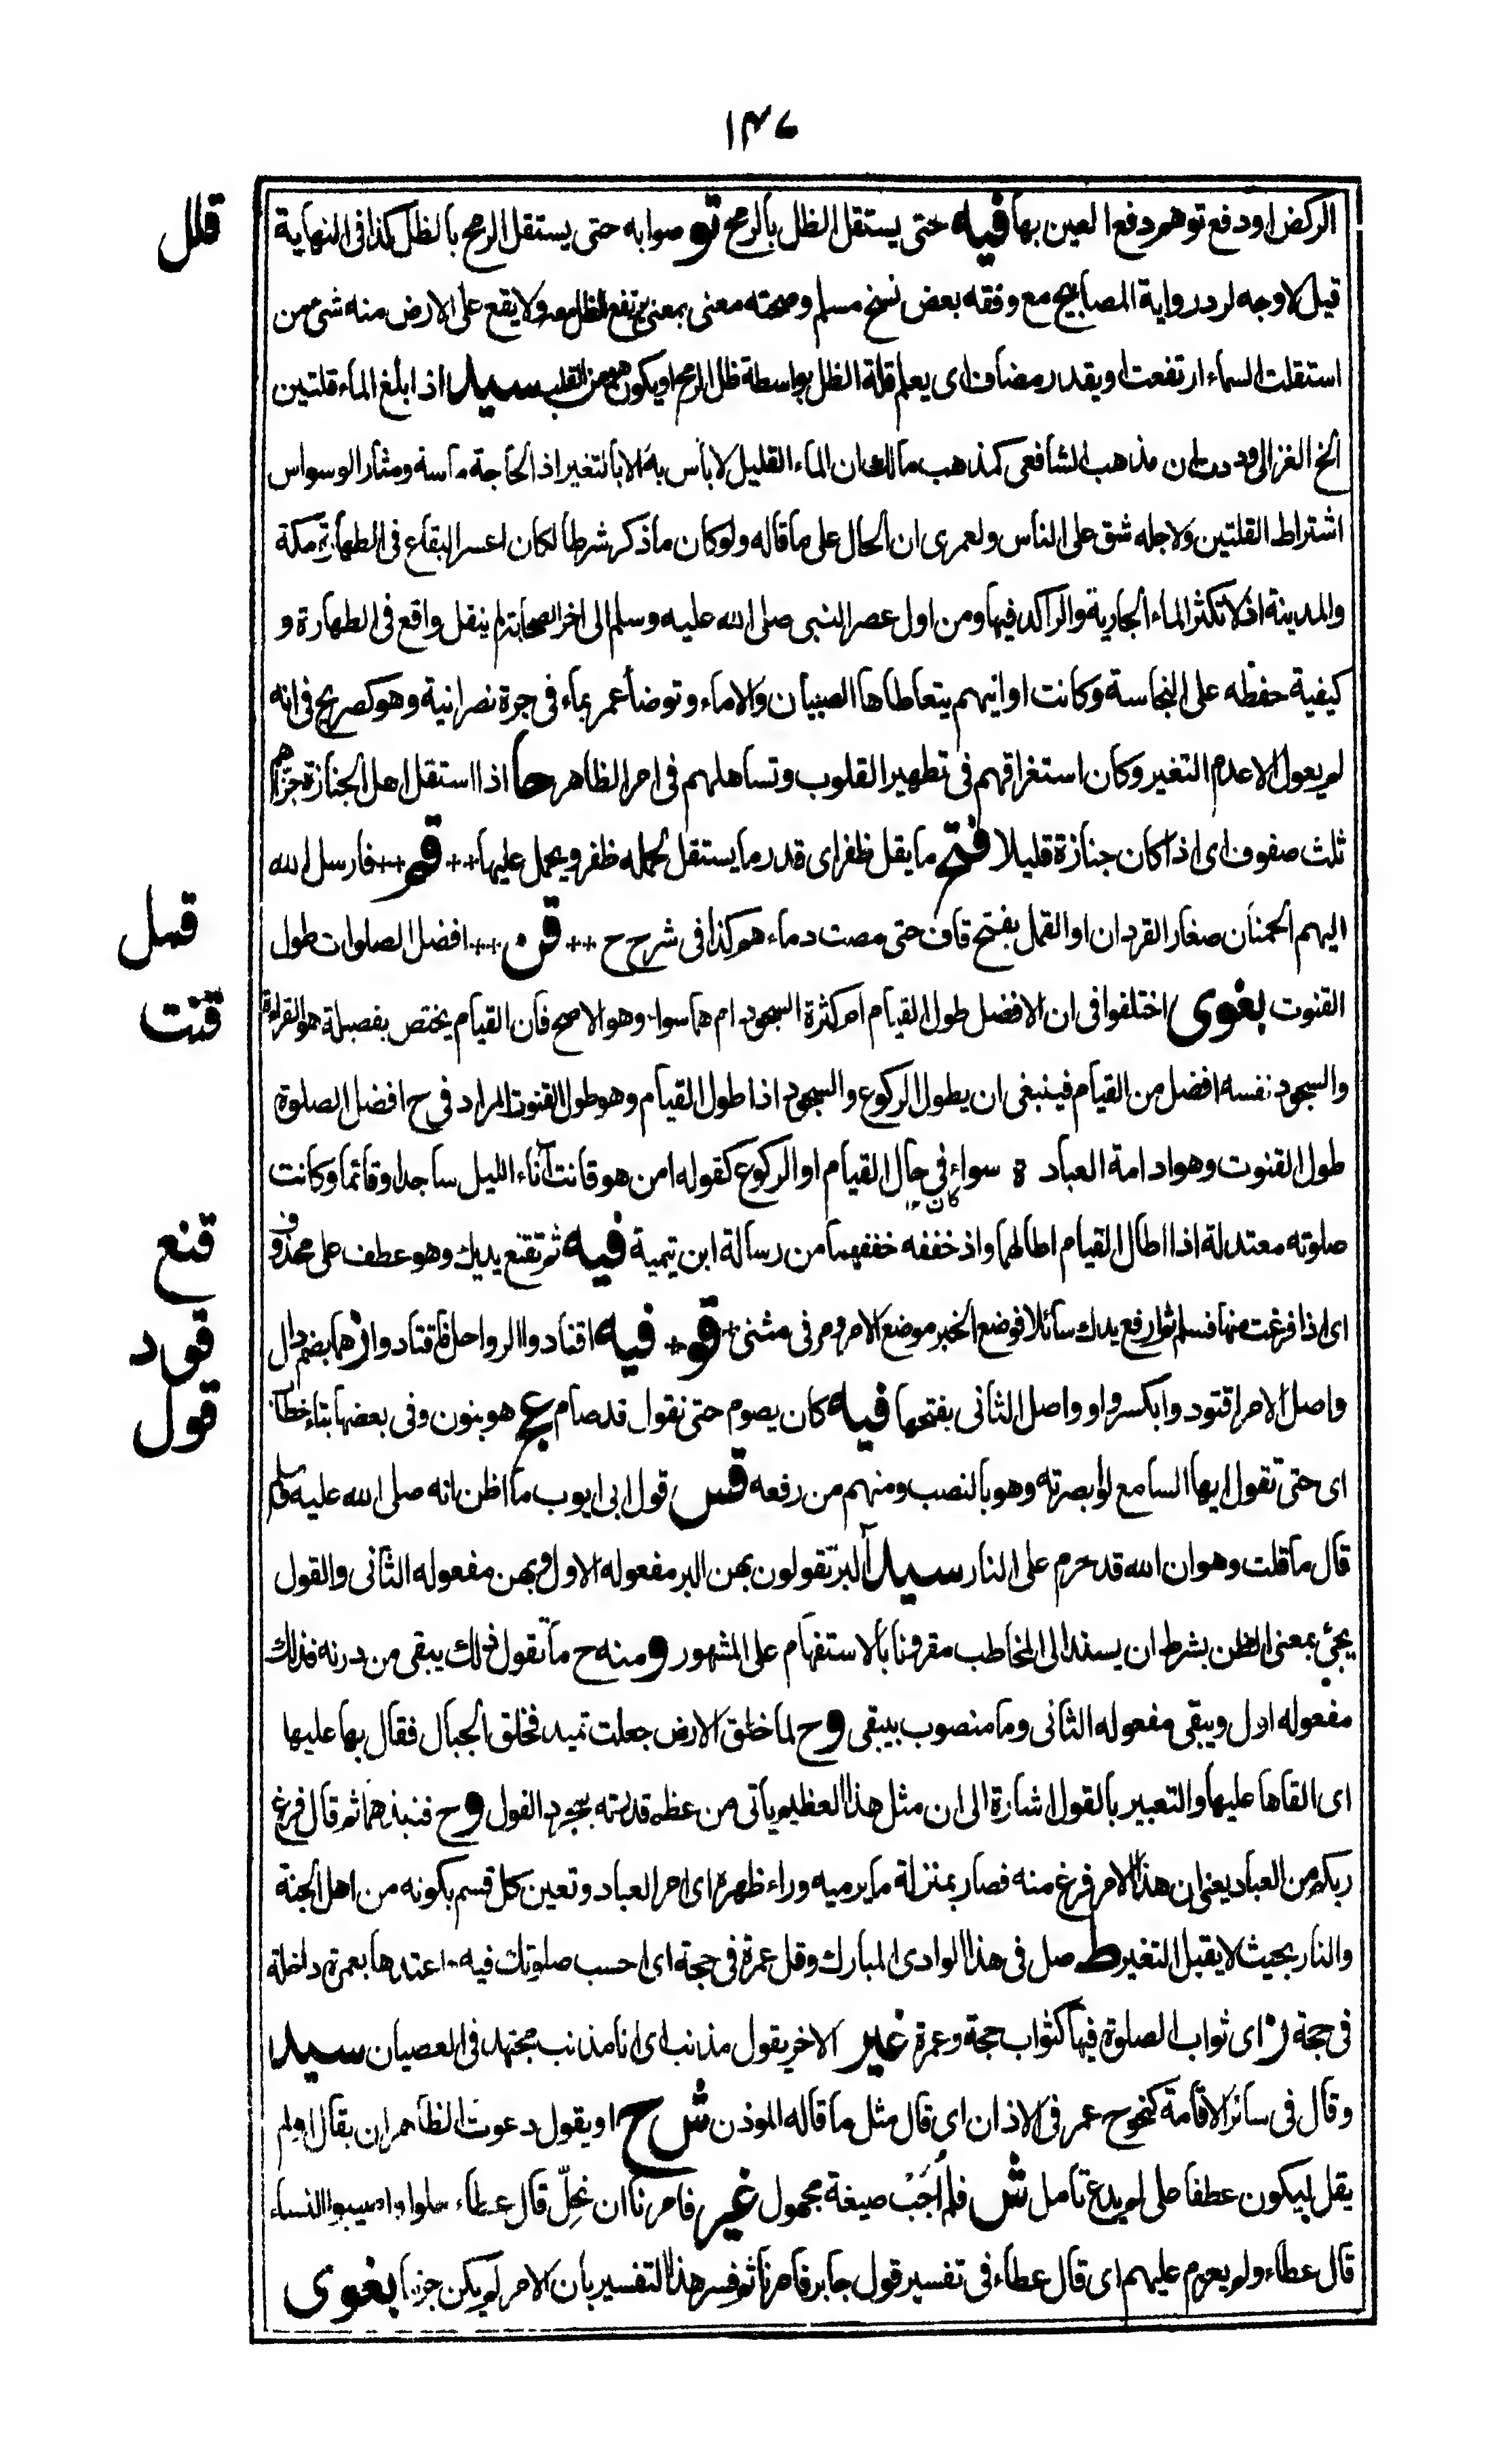 ١٤٧
الركض او دفع توهم دفع العين بها فيه حتى يستقل الظل بالرمح تو صوابه حتى يستقل الرمح بالظل كذا فى النهاية
قلل
قيل لا وجه لرد رواية المصابيح مع وفقه بعض نسخ مسلم وصحته معنى بمعنى يرتفع الظل معه ولا يقع على الارض منه شئ من
استقلت السماء ارتفعت او يقدر مضاف اى يعلم قلة الظل بواسطة ظل الرمح او يكون هو من القلب سيد اذا بلغ الماء قلتين
الخ الغزالى وددت ان مذهب الشافعى كمذهب مالك ان الماء القليل لا بأس به الا بالتغير اذ الحاجة ماسة ومثار الوسواس
اشتراط القلتين ولاجله شق على الناس ولعمرى ان الحال على ما قاله ولو كان ما ذكر شرطا لكان اعسر البقاع فى الطهارة مكة
والمدينة اذ لا تكثر الماء الجارية والراكد فيها ومن اول عصر النبى صلى الله عليه وسلم الى اخر الصحابة لم ينقل واقع فى الطهارة و
كيفية حفظه على النجاسة وكانت اوانيهم يتعاطاها الصبيان والاماء وتوضأ عمر بماء فى جرة نصرانية وهو كصريح فى انه
لم يعول الا عدم التغير وكان استغراقهم فى تطهير القلوب وتساهلهم فى امر الظاهر حا اذا استقل اهل الجنازة جزّاهم
ثلث صفوف اى اذا كان جنازة قليلا فتح ما يقل ظفر اى قدر ما يستقل لحمله ظفر ويحمل عليها ++ قم ++ فارسل الله
قمل
اليهم الحمنان صغار القردان او القمل بفتح قاف حتى مصت دماءهم كذا فى شرح ح ++ قن ++ افضل الصلوات طول
قنت
القنوت بغوى اختلفوا فى ان الافضل طول القيام ام كثرة السجود ام هما سواء وهو الاصح فان القيام يختص بفصيلة هو القراءة
والسجود نفسه افضل من القيام فينبغى ان يطول الركوع والسجود اذا طول القيام وهو طول القنوت المراد فى ح افضل الصلوة
طول القنوت وهو ادامة العبادة سواء كان فى حال القيام او الركوع كقوله امن هو قانت آناء الليل ساجدا وقائما وكانت
صلوته معتدلة اذا اطال القيام اطالها واذ خففه خففهما من رسالة ابن تيمية فيه ثم تقنع يديك وهو عطف على محذوف
قنع
اى اذا فرغت منها فسلم ثم ارفع يدك سائلا فوضع الخبر موضع الامر ومر فى مثنى + قو + فيه اقتادوا الرواحل فاقتادوا ن هما بضم دال
قود
واصل الامر اقتودوا بكسر واو واصل الثانى بفتحها فيه كان يصوم حتى نقول قد صام عج هو بنون وفى بعضها بتاء خطاب
قول
اى حتى تقول ايها السامع لو ابصرته وهو بالنصب ومنهم من رفعه قس قول ابى ايوب ما اظن انه صلى الله عليه وسلم
قال ما قلت وهو ان الله قد حرم على النار سيد آلبر تقولون بهن البر مفعوله الاول وبهن مفعوله الثانى والقول
يجئ بمعنى الظن بشرط ان يسند الى المخاطب مقرونا بالاستفهام على المشهور ومنه ح ما تقول ذلك يبقى من درنه فذلك
مفعوله اول ويبقى مفعوله الثانى وما منصوب بيبقى وح لما خلق الارض جعلت تميد فخلق الجبال فقال بها عليها
اى القاها عليها والتعبير بالقول اشارة الى ان مثل هذا العظيم ياتى من عظم قدرته بمجرد القول وح فنبذهما ثم قال فرغ
ربكم من العباد يعنى ان هذا الامر فرغ منه فصار بمنزلة ما يرميه وراء ظهره اى امر العباد وتعين كل قسم بكونه من اهل الجنة
والنار بحيث لا يقبل التغير ط صل فى هذا الوادى المبارك وقل عمرة فى حجة اى احسب صلوتك فيه اعتدها بعمرة داخلة
فى حجة ن اى ثواب الصلوة فيها كثواب حجة وعمرة غير الاخر يقول مذنب اى انا مذنب مجتهد فى العصيان سيد
وقال فى سائر الاقامة كنحو ح عمر فى الاذان اى قال مثل ما قاله الموذن ش ح او يقول دعوت الظاهر ان يقال اولم
يقل ليكون عطفا على لم يدع تامل ش فلم اُجَبْ صيغة مجهول غير فامرنا ان نحِلّ قال عطاء حلوا واصيبوا النساء
قال عطاء ولم يعزم عليهم اى قال عطاء فى تفسير قول جابر فامرنا ثم فسر هذا التفسير بان الامر لم يكن جزما بغوى